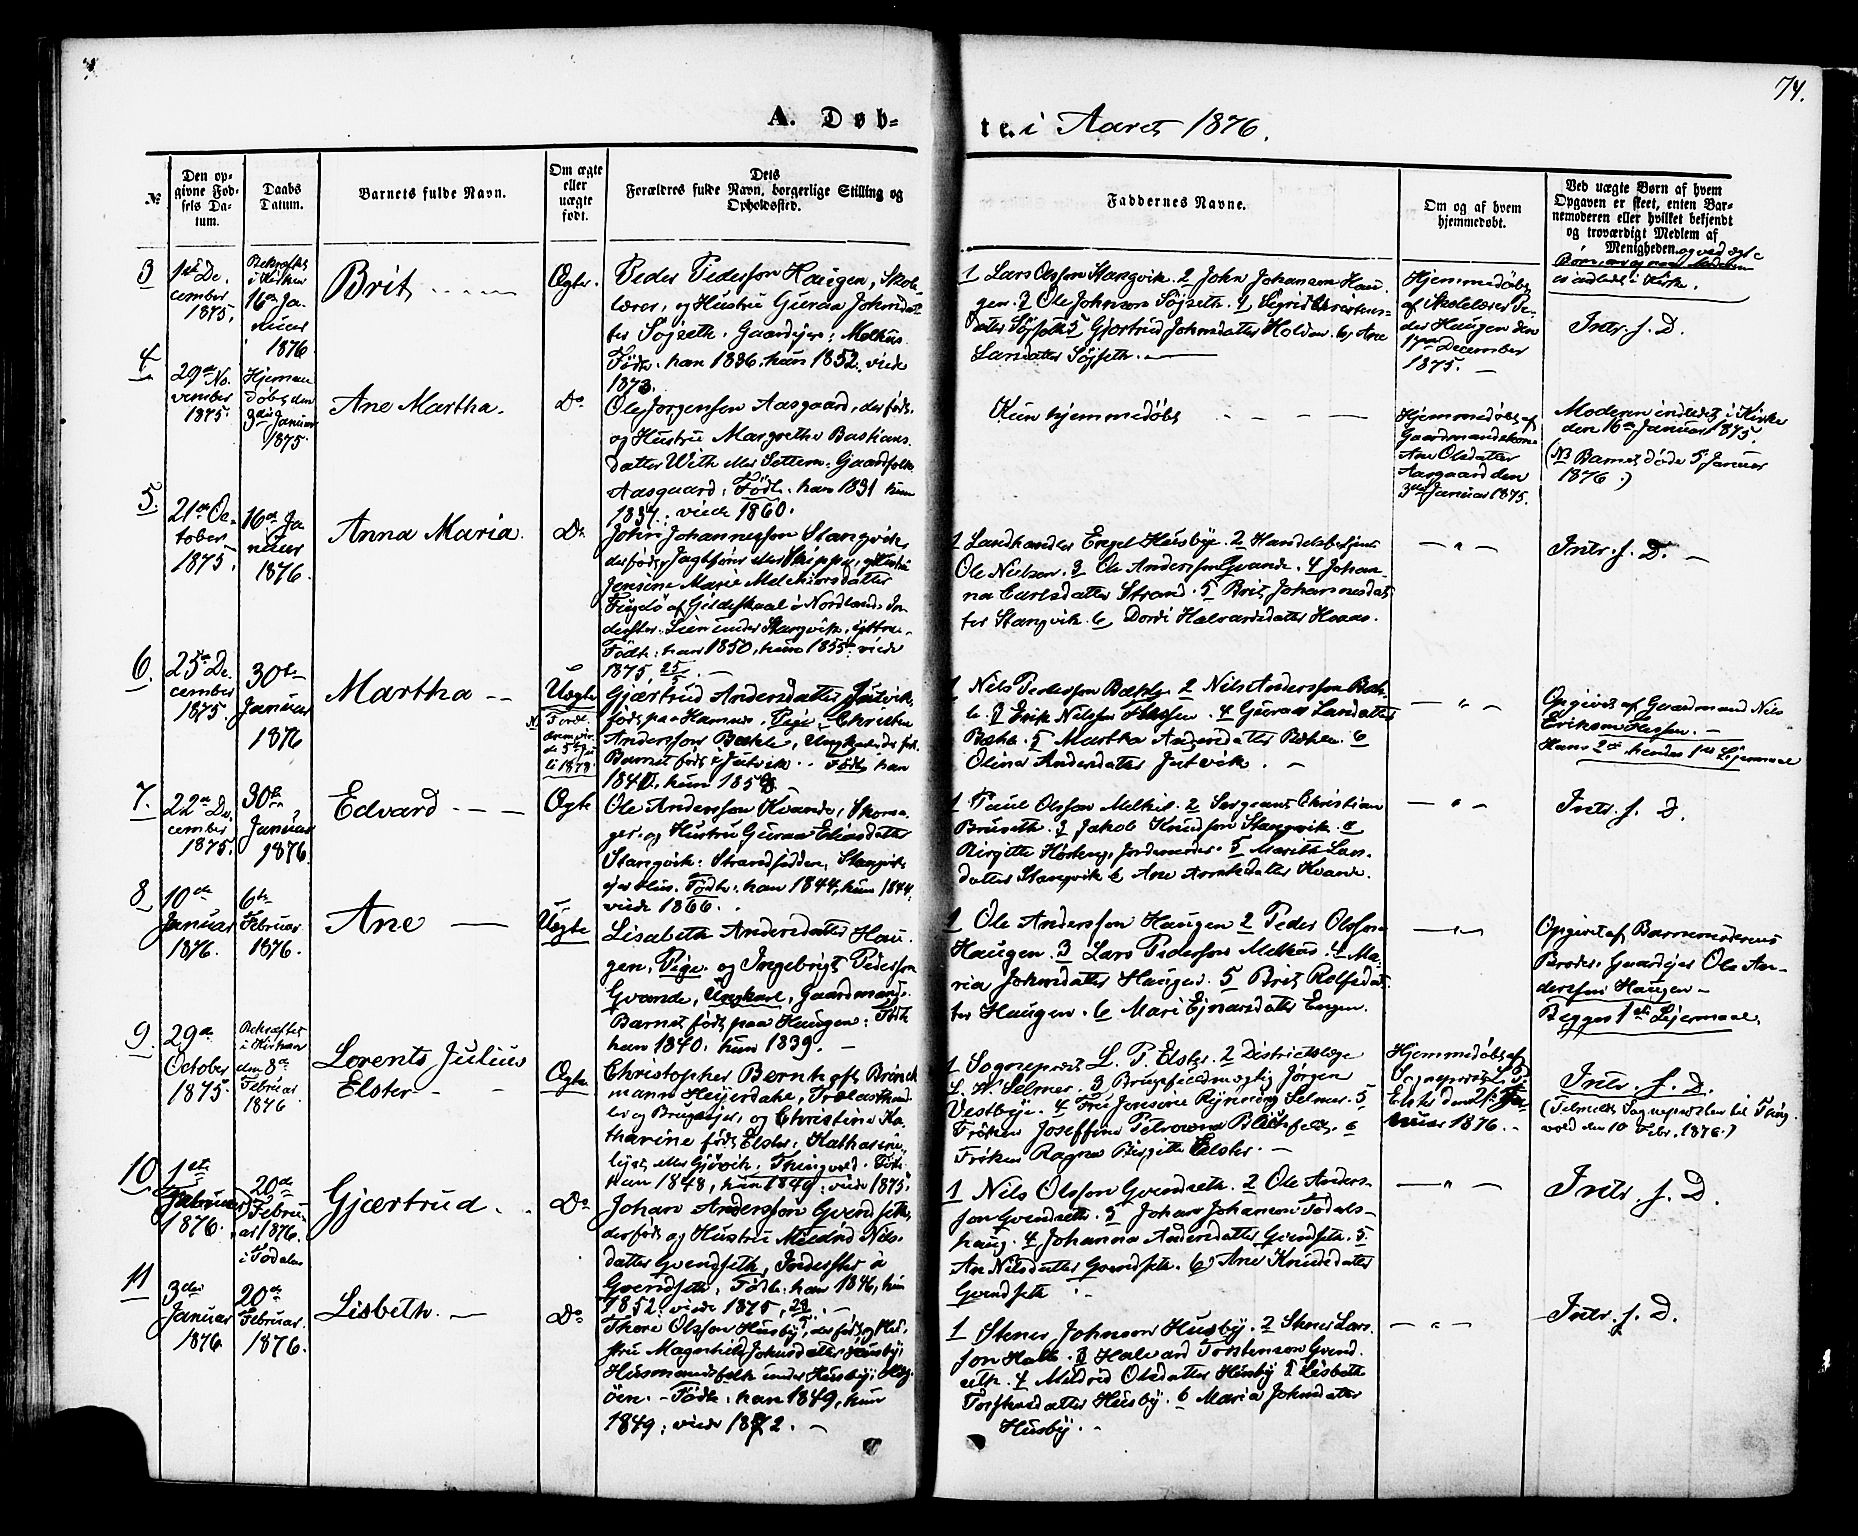 74.
A. Døb-
te. i Aaret 1876.
№
Den op-
givne Fød-
sels Da-
tum.
Daabs
Datum.
Barnets fulde Navn.
Om ægte
eller
uægte
født.
Dets
Forældres fulde Navn, borgerlige Stilling og
Opholdssted.
Faddernes Navne.
Om og af hvem
hjemmedøbt.
Ved uægte Børn af hvem
Opgaven er skeet, enten Bar-
nemoderen eller hvilket bekjendt
og troværdigt Medlem af
Menigheden. og ved ægte
Børn
indledt i Kirke.
3
1ste De-
cember
1875.
Bekræftet
i Kirken
16de Ja-
nuar
1876.
Brit
Ægte
Peder Pedersen Haugen, Skole-
lærer, og Hustru Guraa Johnsdat-
ter Søjseth. Gaardejer: Melhus.
Født: han 1836, hun 1852. viede
1873.
1 Lars Olsson Stangvik. 2 John Johansson Hau-
gen. 3 Ole Johnson Søjseth. 4 Sigrid Christens-
datter Søjseth 5 Gjertrud Johnsdatter Holden. 6 Ane
Larsdatter Søjseth.
Hjemmedøbt
af Skolelærer Pe-
der Haugen den
December
1875.
Intr. s. D.
4.
29de No-
vember
1875.
Hjemme
døbt den
3die Januar
1875.
Ane Martha.
Do
Ole Jørgensson Aasgaard, der født,
og Hustru Margrethe Bastians-
datter With eller Settem: Gaardfolk
Aasgaard. Født: han 1831 hun
1837: viede 1860.
Kun hjemmedøbt
Hjemmedøbt af
Gaardmandskone
Ane Olsdatter
Aasgaard den
3die Januar 1875.
Moderen indledet i Kirke
den 16de Januar 1875.
(NB Barnet døde 5 Januar
1876.)
5.
21de Oc-
tober
1875.
16de Ja-
nuar
1876.
Anna Maria.
Do
John Johannesson Stangvik
der født, Jagtfører eller Skipper, og Hustru
Jensine Marie Melchiorsdatter
Fugelø af Gildeskaal i Nordland. In-
derster: Lien under Stangvik, ytre.
Født: han 1850, hun 1855: viede
1875, 25/5.
1 Landhandler Engel Husbye. 2 Handelsbetjent
Ole Nielsen. 3 Ole Andersson Qvande. 4 Johan-
na Carlsdatter Strand. 5 Brit Johannesdat-
ter Stangvik. 6 Dordi Halvardsdatter Hvaas.
Intr. s. D.
6.
25de De-
cember
1875.
30te
Januar
1876
Martha
Uægte
Gjærtrud Andersdatter Jutvik
født paa Hamnes, Pige. Christen
Andersson Bækle, Ungkarl, der født.
Barnet født i Jutvik. Født han
1 Nils Pedersson Bækle. 2 Nils Andersson Bæk-
le. 3 Erik Nilsson Flessen. 4 Guraa Larsdatter
Bækle. 5 Martha Andersdatter Bækle. 6
Olina Andersdatter Jutvik.
Opgivet af Gaardmand Nils
Eriksson Flessen.
Hans 2det hendes 1ste Lejermaal
7.
22de De-
cember
1875.
30te
Januar
1876.
Edvard
Ægte
Ole Andersson Kvande, Skoma-
ger, og Hustru Guraa Eliasdatter
Stangvik: Strandsidder, Stangvik
ejer Hus. Født: han 1844, hun 1844.
viede 1866.
1 Paul Olsson Melhus. 2 Sergeant Christian
Bruseth. 3 Jakob Knudson Stangvik. 4
Birgitte Høsteng, Jordemoder. 5 Marith Lars-
datter Stangvik 6 Ane Arntsdatter Kvande.
Intr. s. D.
8
10de
Januar
1876.
6te
Februar
1876.
Ane
Uægte
Lisabeth Andersdatter Hau-
gen, Pige. og Ingebrigt Pedersson
Qvande, Ungkarl, Gaardmand.
Barnet født paa Haugen: Født
han 1840. hun 1839.
1 Ole Andersson Haugen 2 Peder Olsson
Haugen. 3 Lars Pedersson Melhus. 4 Ma-
ria Johnsdatter Haugen. 5 Brit Rolfsdat-
ter Haugen. 6 Mari Ejnarsdatter Engen.
Opgivet af Barnemoderens
Broder, Gaardejer Ole An-
dersson Haugen.
Begges 1ste Lejermaal.
9.
29de
October
1875.
Bekræftet
i Kirken
den 8de
Februar
1876
Lorents Julius
Elster
Ægte
Christopher Bernhoft Brönck-
mann Heyerdahl, Trælasthand-
ler og Brugsejer, og Christine Ka-
tharine født Elster: Katharine-
lyst eller Gjøvik, Thingvold. Født:
han 1848, hun 1849: viede 1875.
1 Sogneprest L. P. Elster. 2 Districtslæge
L. W. Selmer. 3 Brugsfuldmægtig Jørgen
Vestbye. 4 Fru Jonsine Rynning Selmer. 5
Frøken Josefine Petronna Blichfeldt. 6
Frøken Ragna Birgitte Elster.
Hjemmedøbt af
Sogneprest L. P.
Elster den Ja-
nuar 1876.
Intr. s. D.
(Tilmeldt Sognepresten til Thing-
vold den 10 Febr. 1876.)
10.
1ste
Februar
1876.
20de
Febru-
ar 1876.
i Todalen
Gjærtrud
Do
Johan Andersson Qvendseth,
der født og Hustru Mildrid Nils-
datter Qvendseth, Inderster i
Qvendseth. Født: han 1846, hun
1852: viede 1875
1 Nils Olsson Qvendseth. 2 Ole Anders-
son Qvendseth. 3 Johan Johanson Todals-
haug. 4 Johanna Andersdatter Qvendseth. 5
An Nilsdatter Qvendseth. 6 Ane Knudsdatter
Qvendseth
Intr. s. D.
11
3die
Januar
1876.
20de
Februar
1876.
Lisbeth.
Do
Thore Olsson Husby, der født, og Hus-
tru Magnhild Johnsdatter Husby;
Husmandsfolk under Husby;
Født: han 1849, hun
1849: viede 1872.
1 Stener Johnson Husby. 2 Stener Lars-
son Halle. 3 Halvard Torstenson Qvend-
seth. 4 Mildrid Olsdatter Husby 5 Lisbeth
Torstensdatter Husby. 6 Maria Johnsdatter
Husby.
Intr. s. D.